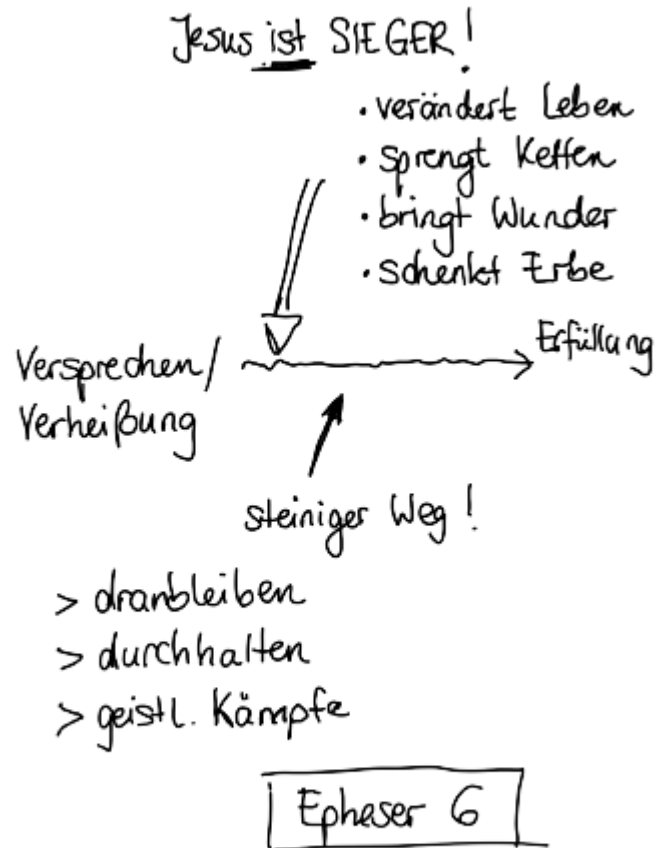 Jesus ist SIEGER!
• verändert Leben
• sprengt Ketten
• bringt Wunder
• schenkt Erbe
Versprechen/
Verheißung
Erfüllung
steiniger Weg!
> dranbleiben
> durchhalten
> geistl. Kämpfe
Epheser 6